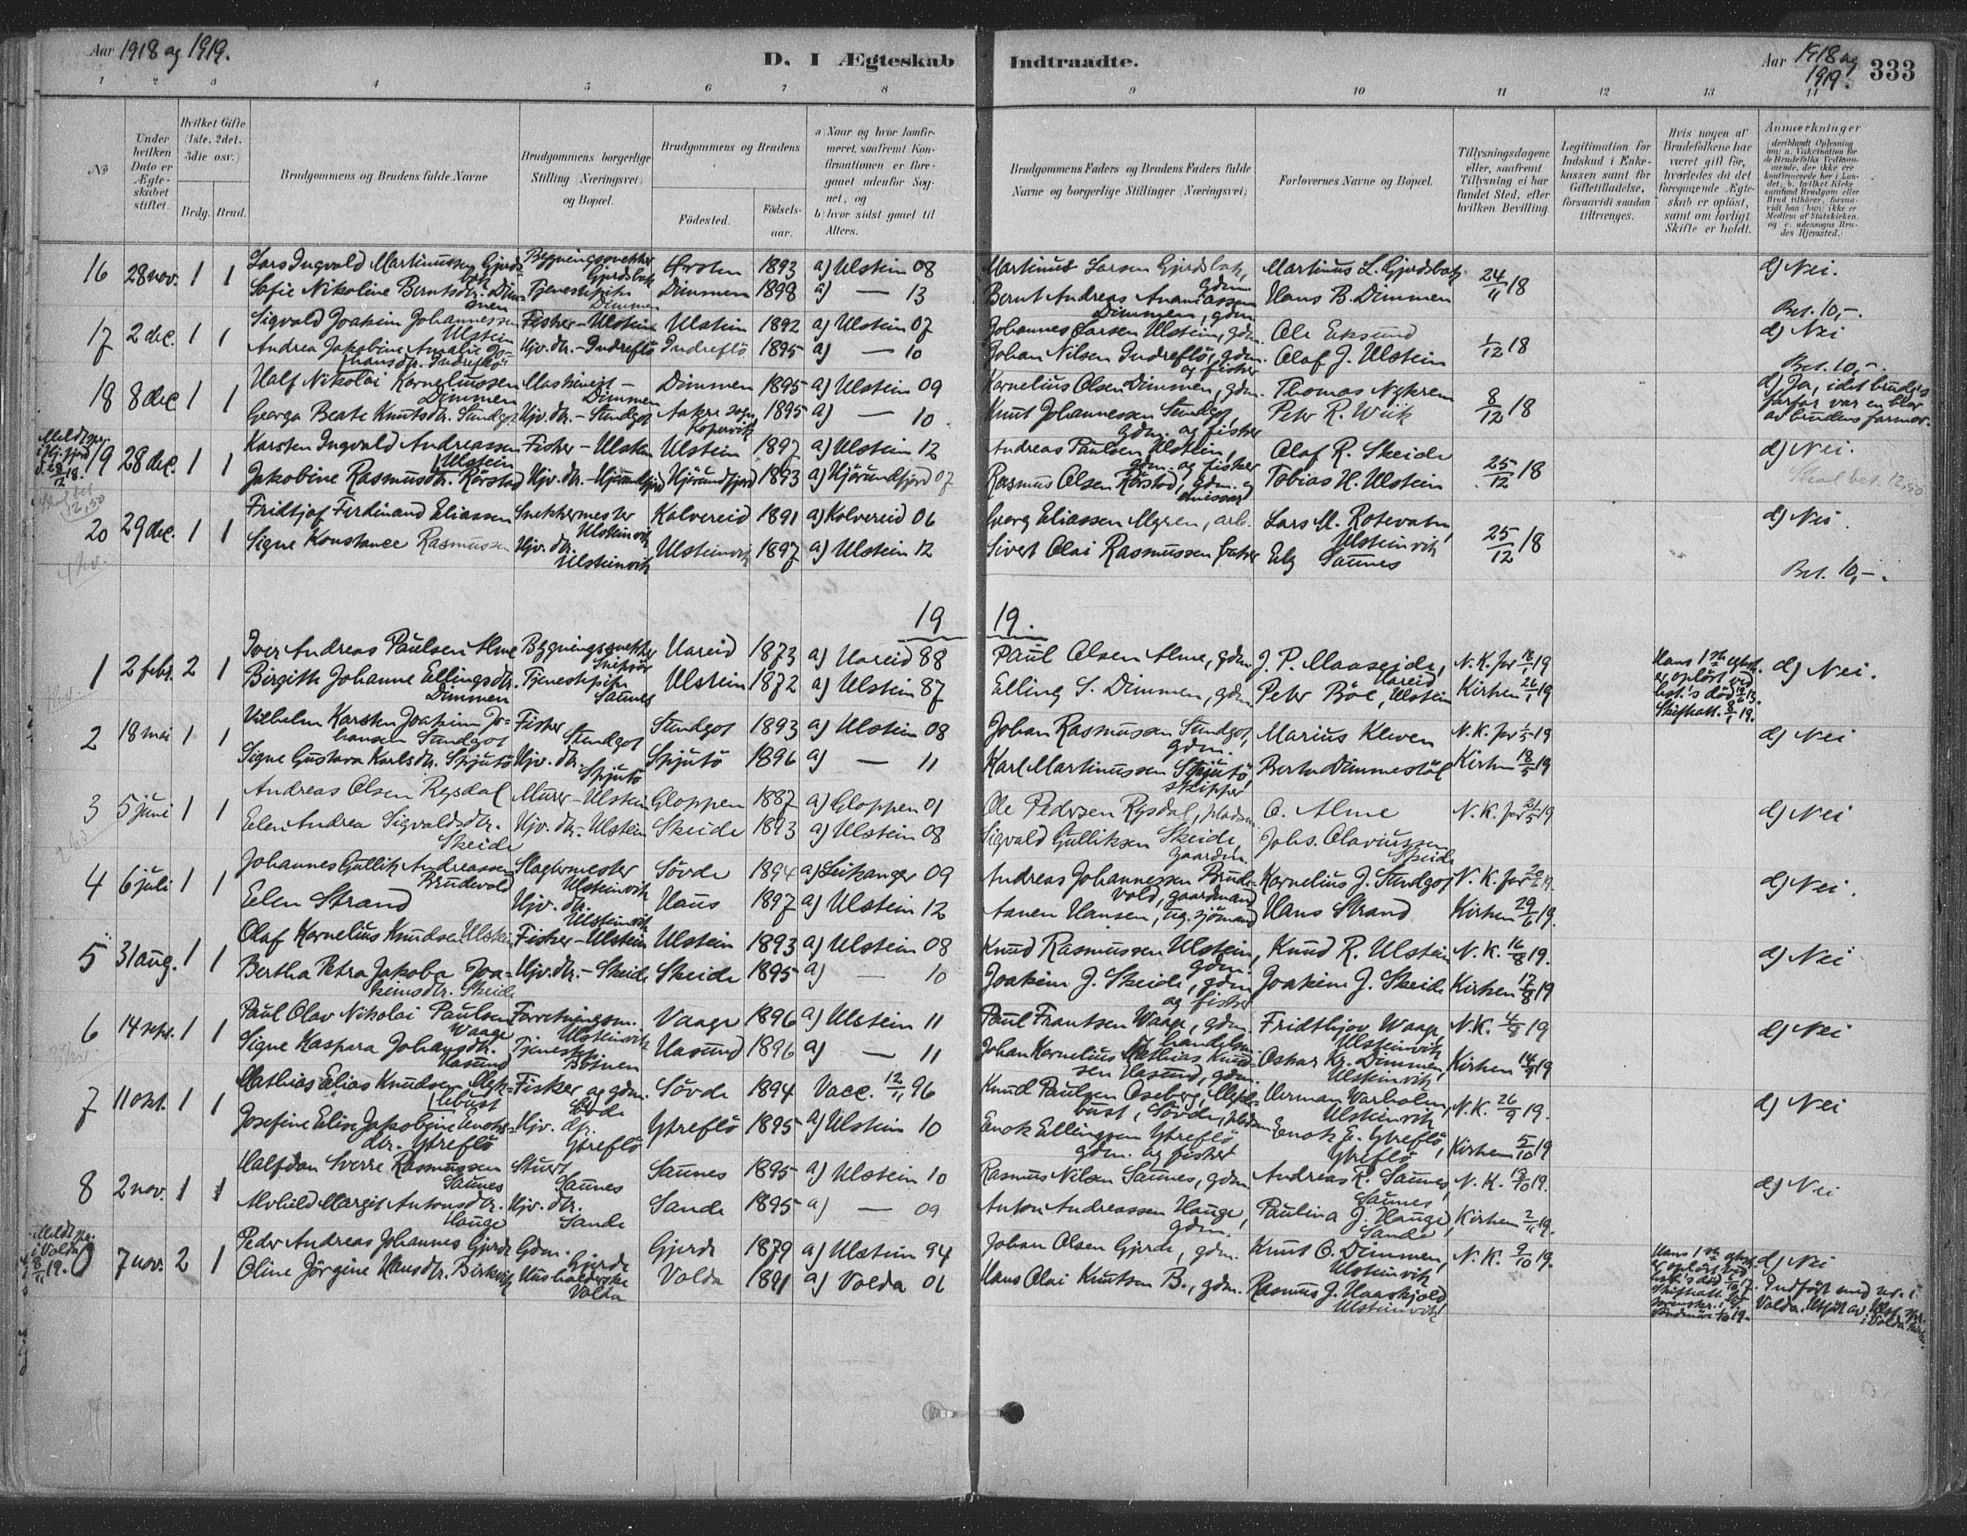 Aar 1918 og 1919.
D. I Ægteskab Indtraadte.
Aar 1918 og 1919. 333
1 2 3 4 5 6 7 8 9 10 11 12 13 11
No
Under hvilken Dato er Ægteskabet stiftet.
Hvilket Gifte (1ste, 2det, 3die osv.)
Brdg. Brud.
Brudgommens og Brudens fulde Navne
Brudgommens borgerlige Stilling (Næringsvei) og Bopæl.
Brudgommens og Brudens
Födested. Födselsaar.
a) Naar og hvor konfirmeret, saafremt Konfirmationen er foregaaet udenfor Sognet, og
b) hvor sidst gaaet til Alters.
Brudgommens Faders og Brudens Faders fulde Navne og borgerlige Stillinger (Næringsvei)
Forlovernes Navne og Bopæl.
Tillysningsdagene eller, saafremt Tillysning ei har fundet Sted, efter hvilken Bevilling.
Legitimation for Indskud i Enkekassen samt for Giftetilladelse, forsaavidt saadan tiltrænges.
Hvis nogen af Brudefolkene har været gift för, hvorledes da det foregaaende Ægteskab er oplöst, samt om lovligt Skifte er holdt.
Anmærkninger
16 28 nov. 1 1 Lars Ingvald Martinussen Gjerdsbak Bygningssnekker Gjerdsbak Örsten 1893 a) Ulstein 08 Martinus Larsen Gjerdsbak, gdm. Martinus L. Gjerdsbak 24/11 18 d) Nei.
Sofie Nikoline Berntsdtr. Dimmen Tjenestepike Dimmen Dimmen 1898 a) — 13 Bernt Andreas Ananiassen Dimmen, gdm. Hans B. Dimmen Bet. 10,-.
17 2 dec. 1 1 Sigvald Joakim Johannessen Ulstein Fisker - Ulstein Ulstein 1892 a) Ulstein 07 Johannes Larsen Ulstein, gdm. Ole Eksund 1/12 18 d) Nei
Andrea Jakobine Amalie Johansdtr. Indreflö Hjv. dtr. - Indreflö Indreflö 1895 a) — 10 Johan Nilsen Indreflö, gdm. og fisker Olaf J. Ulstein Bet. 10,-.
18 8 dec 1 1 Ualf Nikolai Korneliussen Dimmen Maskinist - Dimmen Dimmen 1895 a) Ulstein 09 Kornelius Olsen Dimmen, gdm. Thomas Nykrem 8/12 18 d) Ja, idet brudens farfar var en bror av brudens farmor.
Georga Beate Knutsdtr. Sundgot Hjv. dtr. - Sundgot Aakre sogn, Kopervik 1895 a) — 10. Knut Johannessen Sundgot, gdm. og fisker Peter R. Wiik
19 28 dec. 1 1 Karsten Ingvald Andreassen Ulstein Fisker - Ulstein Ulstein 1897 a) Ulstein 12 Andreas Paulsen Ulstein, gdm. og fisker Olaf R. Skeide 25/12 18 d) Nei.
Jakobine Rasmusdtr. Rörstad Hjv. dtr. - Hjörundfjord Hjörundfjord 1893 a) Hjörundfjord 07 Rasmus Olsen Rörstad, gdm. og Tobias H. Ulstein Skal bet. 12,50
20 29 dec. 1 1 Fridtjof Ferdinand Eliassen Snekkermester Ulsteinvik Kolvereid 1891 a) Kolvereid 06 Georg Eliassen Myren, arb. Lars M. Rotevatn, Ulsteinvik 25/12 18 d) Nei.
Signe Konstance Rasmussen Hjv. dtr. Ulsteinvik Ulsteinvik 1897 a) Ulstein 12 Sivert Olai Rasmussen Saunes Bet. 10,-.
19 19.
1 2 febr. 2 1 Iver Andreas Paulsen Alme Bygningssnekker Hareid 1873 a) Hareid 88 Paul Olsen Alme, gdm J. P. Maaseide, Hareid N. K. for 18/1 19 Hans 1ste egtesk. er oplöst ved d) Nei.
Birgith Johanne Ellingsdtr. Dimmen Tjenestepike Saunes Ulstein 1872 a) Ulstein 87 Elling S. Dimmen, gdm. Peter Böe, Ulstein Kirken 26/1 19 Skifteatt. 8/1 19.
2 18 mai 1 1 Vilhelm Karsten Joakim Johansen Sundgot Fisker Sundgot Sundgot 1893 a) Ulstein 08 Johan Rasmussen Sundgot, gdm. Marius Kleven N. K. for 1/5 19 d) Nei
Signe Gustava Karlsdtr. Spjutö Hjv. dtr. Spjutö Spjutö 1896 a) — 11 Karl Martinussen Spjutö, skipper Berto Dimmestöl Kirken 18/5 19
3 5 juni 1 1 Andreas Olsen Rysdal Murer - Ulstein Gloppen 1887 a) Gloppen 01 Ole Pedersen Rysdal, pladsm. O. Alme N. K. for 21/5 19 d) Nei
Elen Andrea Sigvaldsdtr. Skeide Hjv. dtr. - Ulstein Skeide 1893 a) Ulstein 08 Sigvald Gulliksen Skeide, gaardm. Johs. Olaviussen Skeide
4 6 juli 1 1 Johannes Gullik Andreassen Brudevold Slagtermester Ulsteinvik Sövde 1894 a) Leikanger 09 Andreas Johannessen Brudevold, gaardmand Kornelius J. Sundgot N. K. for 20/6 19. d) Nei.
Elen Strand Hjv. dtr. Ulsteinvik Haus 1897 a) Ulstein 12 Aanen Hansen, ug. sjömand Hans Strand Kirken 29/6 19.
5 31 aug. 1 1 Olaf Kornelius Knudsen Ulstein Fisker - Ulstein Ulstein 1893 a) Ulstein 08 Knud Rasmussen Ulstein, gdm. Knud R. Ulstein N. K. 16/8 19. d) Nei
Bertha Petra Jakoba Joakimsdtr. Skeide Hjv. dtr. - Skeide Skeide 1895 a) — 10 Joakim J. Skeide, gdm. og fisker Joakim J. Skeide Kirken 17/8 19
6 14 sept. 1 1 Paul Olav Nikolai Paulsen Waage Forretningsm. Ulsteinvik Vaage 1896 a) Ulstein 11 Paul Frantsen Waage, gdm. Fridthjov Waage, Ulsteinvik N. K. 4/8 19 d) Nei
Signe Kaspara Johansdtr. Hasund Tjenestep. Botnen Hasund 1896 a) — 11 Johan Kornelius Mathias Knudsen Hasund, gdm. Oskar Kr. Dimmen, Ulsteinvik Kirken 14/9 19
7 11 okt. 1 1 Mathias Elias Knudsen Myklebust Fisker og gdm. Sövde 1894 Vacc. 12/11 96 Knud Paulsen Aseberg, Myklebust, Sövde, pladsm. Herman Warholm, Ulsteinvik N. K. 26/9 19. d) Nei
Josefine Elise Jakobine Enoksdtr. Ytreflö Hjv. dtr. Ytreflö Ytreflö 1895 a) Ulstein 10 Enok Ellingsen Ytreflö, gdm. og fisker Enok E. Ytreflö, Ytreflö Kirken 5/10 19
8 2 nov. 1 1 Halfdan Sverre Rasmussen Saunes Stuert Saunes Saunes 1895 a) Ulstein 10 Rasmus Nilsen Saunes, gdm. Andreas R. Saunes, Saunes N. K. 19/10 19. d) Nei
Alvhild Margit Antonsdtr. Hauge Hjv. dtr. Sande Sande 1895 a) — 09 Anton Andreassen Hauge, gdm. Paulina J. Hauge, Sande Kirken 2/11 19.
7 nov. 2 1 Peder Andreas Johannes Gjerde Gdm. Gjerde Gjerde 1879 a) Ulstein 94 Johan Olsen Gjerde, gdm. Knut O. Dimmen, Ulsteinvik N. K. 9/10 19. Hans 1ste egtesk. er oplöst ved d) Nei
Oline Jörgine Hansdtr. Birkvik Husholderske Volda Volda 1891 a) Volda 06 Hans Olai Knutsen B., gdm. Rasmus J. Haaskjold Ulsteinvik Indfört med nr. i Volda.